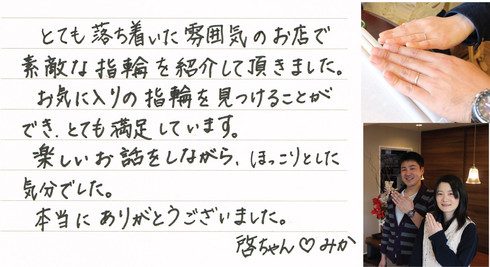 とても落ち着いた雰囲気のお店で
素敵な指輪を紹介して頂きました。
お気に入りの指輪を見つけることが
でき、とても満足しています。
楽しいお話をしながら、ほっこりとした
気分でした。
本当にありがとうございました。
啓ちゃん♡みか